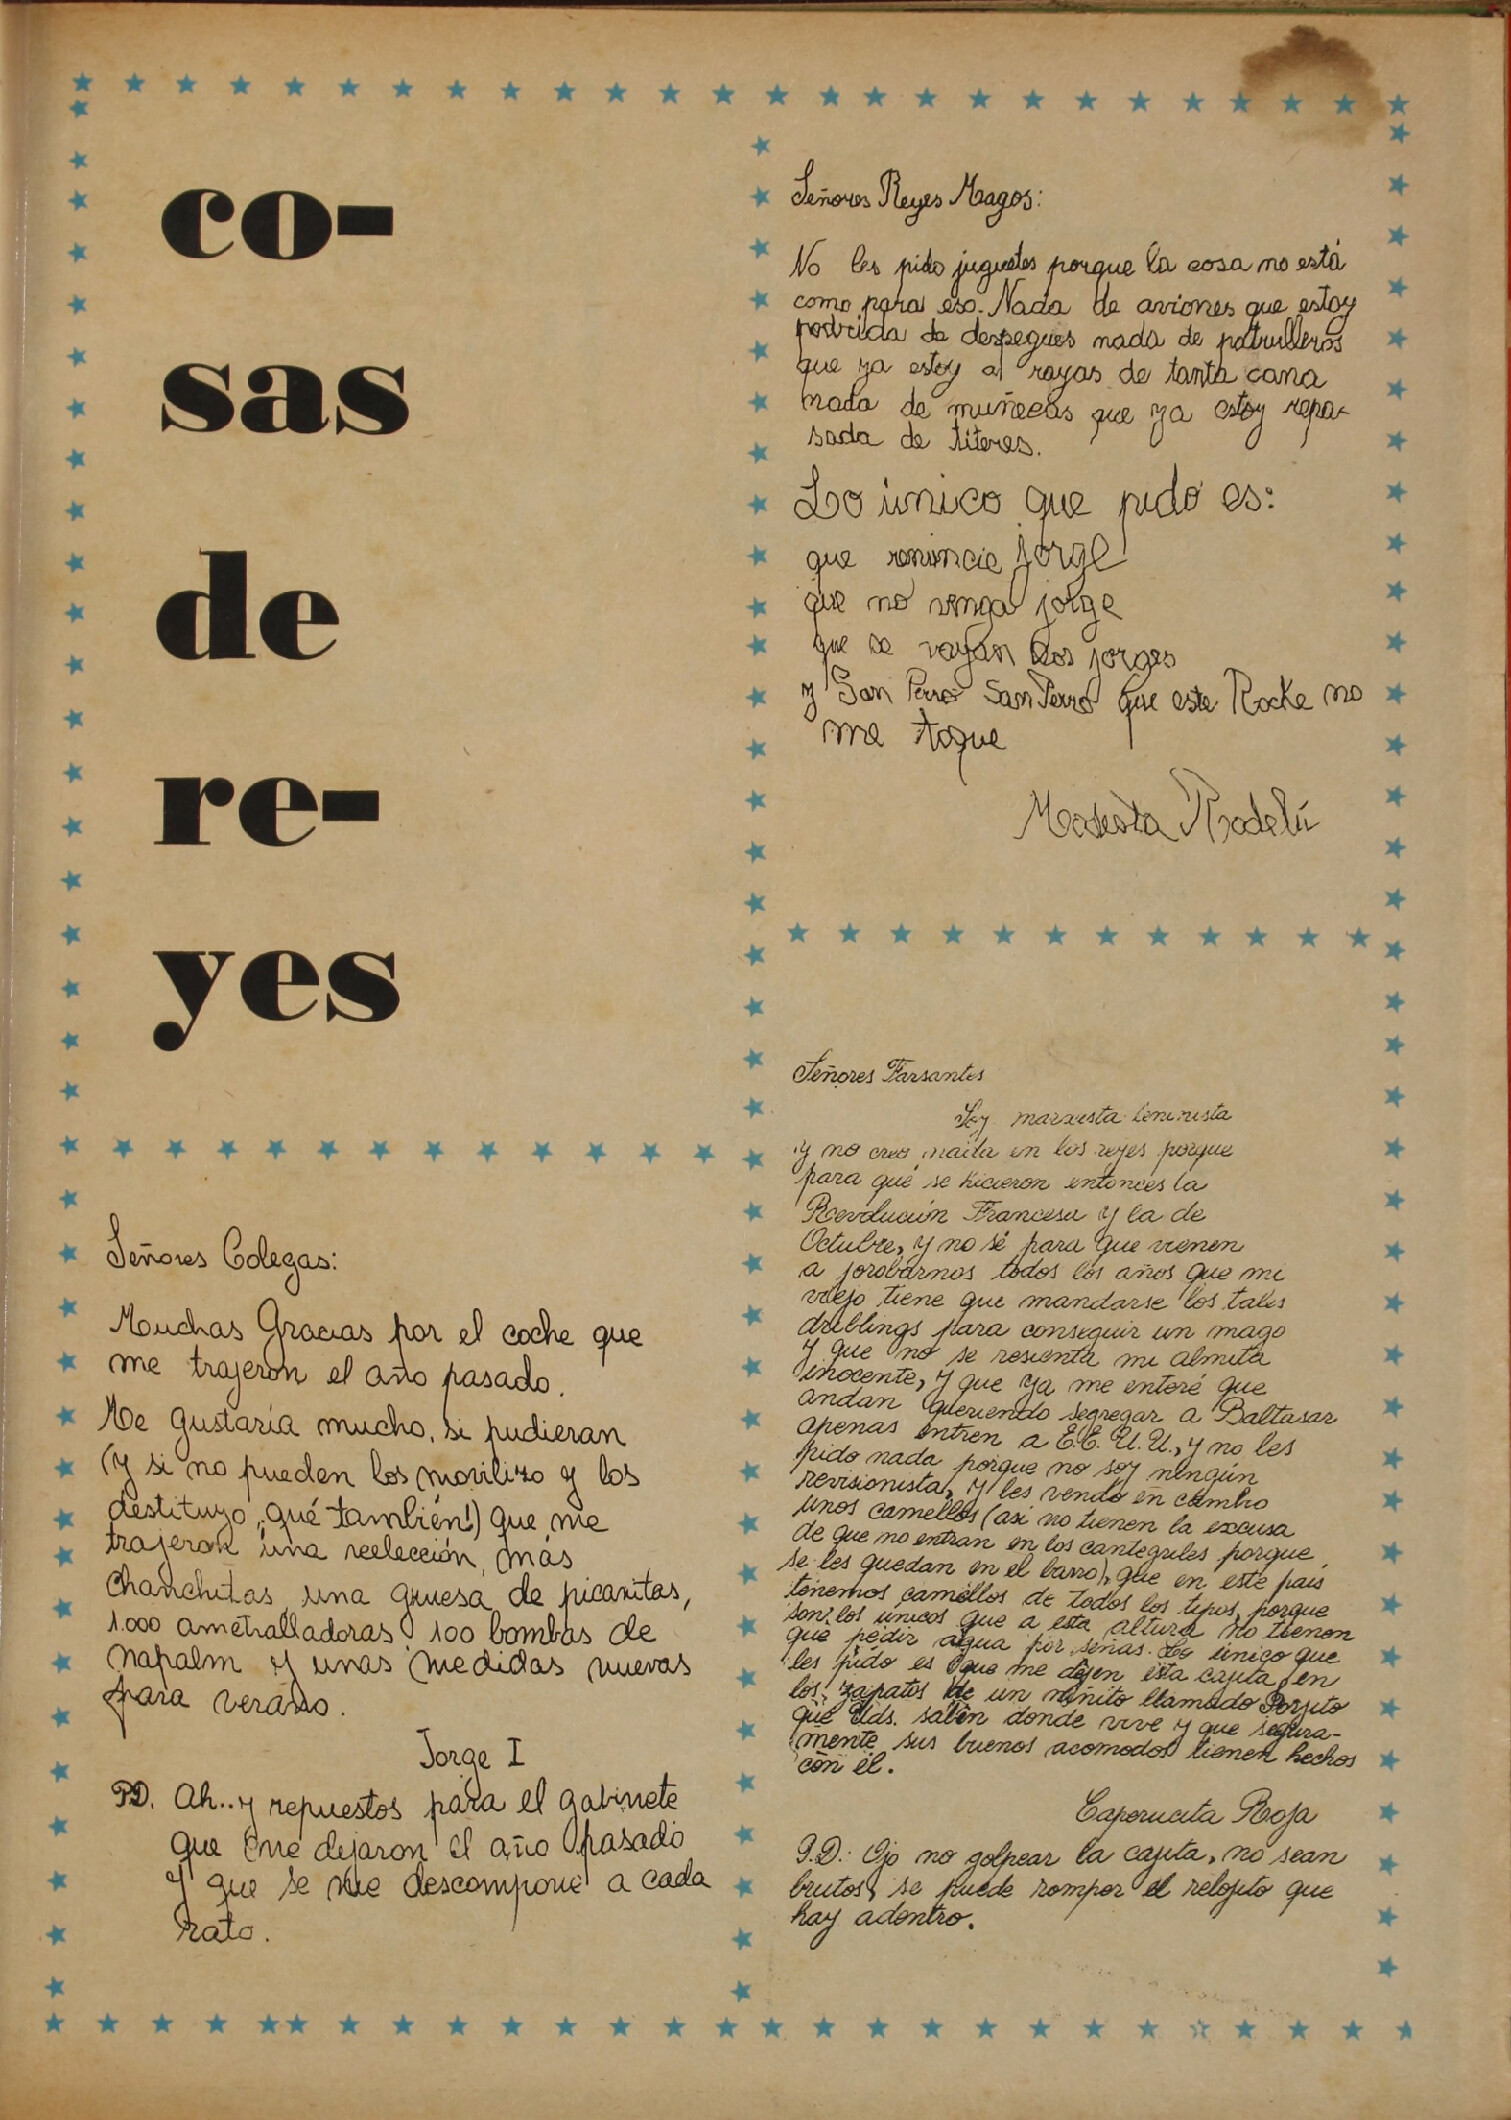 co-
sas
de
re-
yes
Señores Colegas:
Muchas Gracias por el coche que
me trajeron el año pasado.
Me gustaría mucho, si pudieran
(y si no pueden los movilizo y los
destituyo, qué también!) que me
trajeran una reelección, más
chanchitas, una gruesa de picanitas,
1.000 ametralladoras 100 bombas de
napalm y unas medidas nuevas
para verano.
Jorge I
PD. Ah.. y repuestos para el gabinete
que me dejaron el año pasado
y que se me descompone a cada
rato.
Señores Reyes Magos:
No les pido juguetes porque la cosa no está
como para eso. Nada de aviones que estoy
podrida de despegues nada de patrulleros
que ya estoy a rayas de tanta cana
nada de muñecas que ya estoy repa-
sada de títeres.
Lo único que pido es:
que renuncie jorge
que no venga jorge
que se vayan los jorges
y San Perro San Perro que este Rocke no
me toque
Modesta Rodelú
Señores Farsantes
Soy marxista leninista
y no creo naita en los reyes porque
para qué se hicieron entonces la
Revolución Francesa y la de
Octubre, y no sé para que vienen
a jorobarnos todos los años que mi
viejo tiene que mandarse los tales
driblings para conseguir un mago
y que no se resienta mi almita
inocente, y que ya me enteré que
andan queriendo segregar a Baltasar
apenas entren a E.E. U.U., y no les
pido nada porque no soy ningún
revisionista, y les vendo en cambio
unos camellos (así no tienen la excusa
de que no entran en los cantegriles porque
se les quedan en el barro), que en este país
tenemos camellos de todos los tipos, porque
son los únicos que a esta altura no tienen
que pedir agua por señas. Lo único que
les pido es que me dejen esta cajita en
los zapatos de un niñito llamado Porjito
que Uds. saben donde vive y que segura-
mente sus buenos acomodos tienen hechos
con él.
Caperucita Roja
P.D.: Ojo no golpear la cajita, no sean
brutos, se puede romper el relojito que
hay adentro.